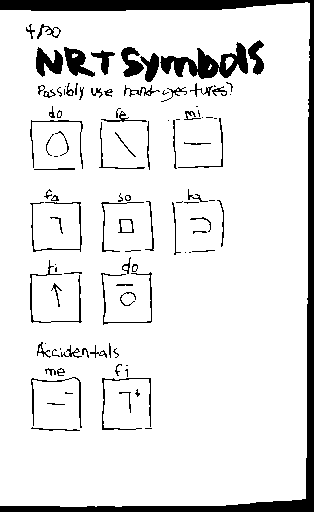 4/30
NRT Symbols
Possibly use hand gestures?
do re mi
fa so la
ti do
Accidentals
me fi